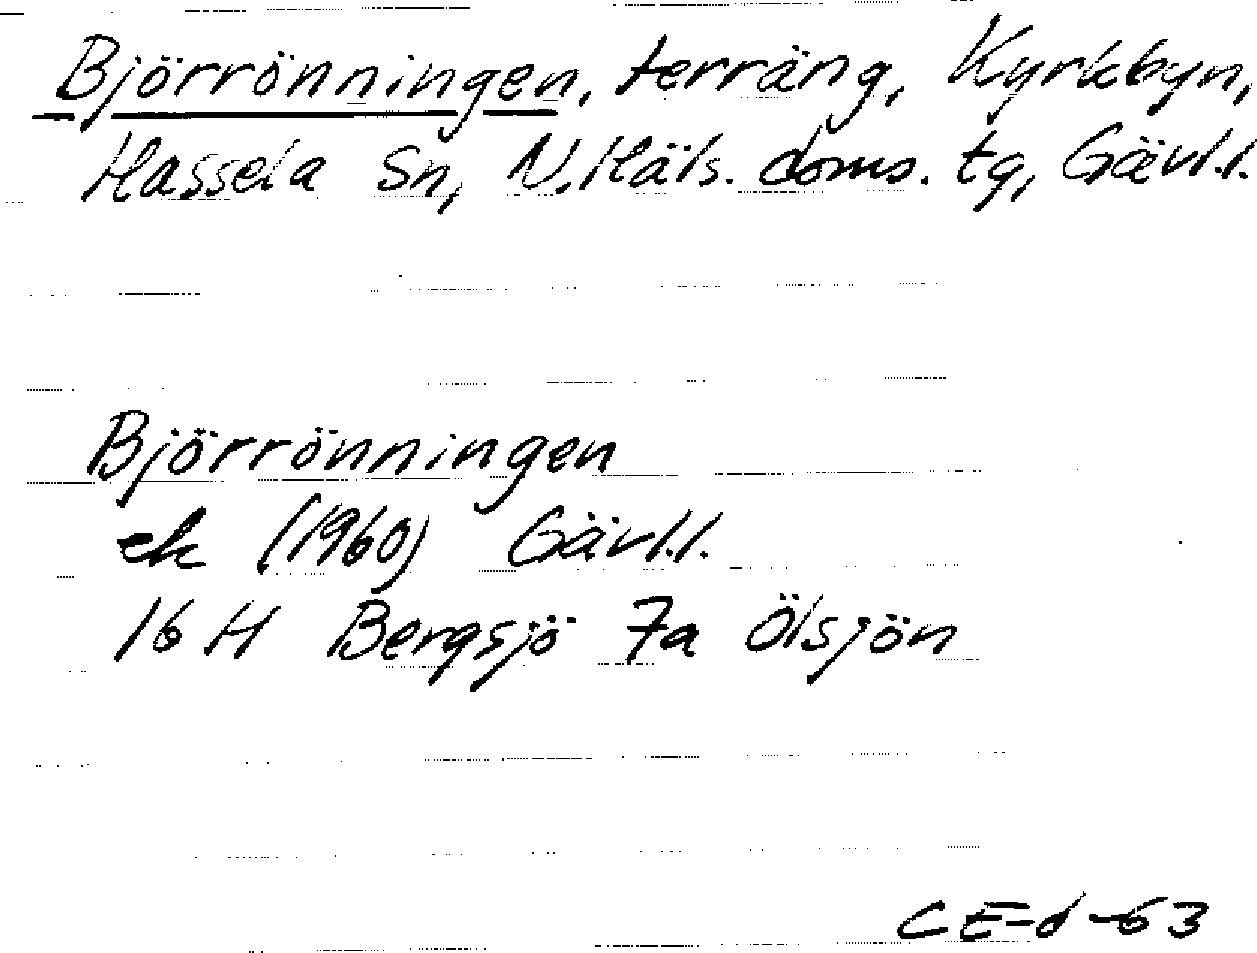 Björrönningen, terräng, Kyrkbyn,
Hassela Sn, N. Häls. doms. tg, Gävl.l.
Björrönningen
ek (1960) Gävl.l.
16 H Bergsjö 7a Ölsjön
CE-d-63